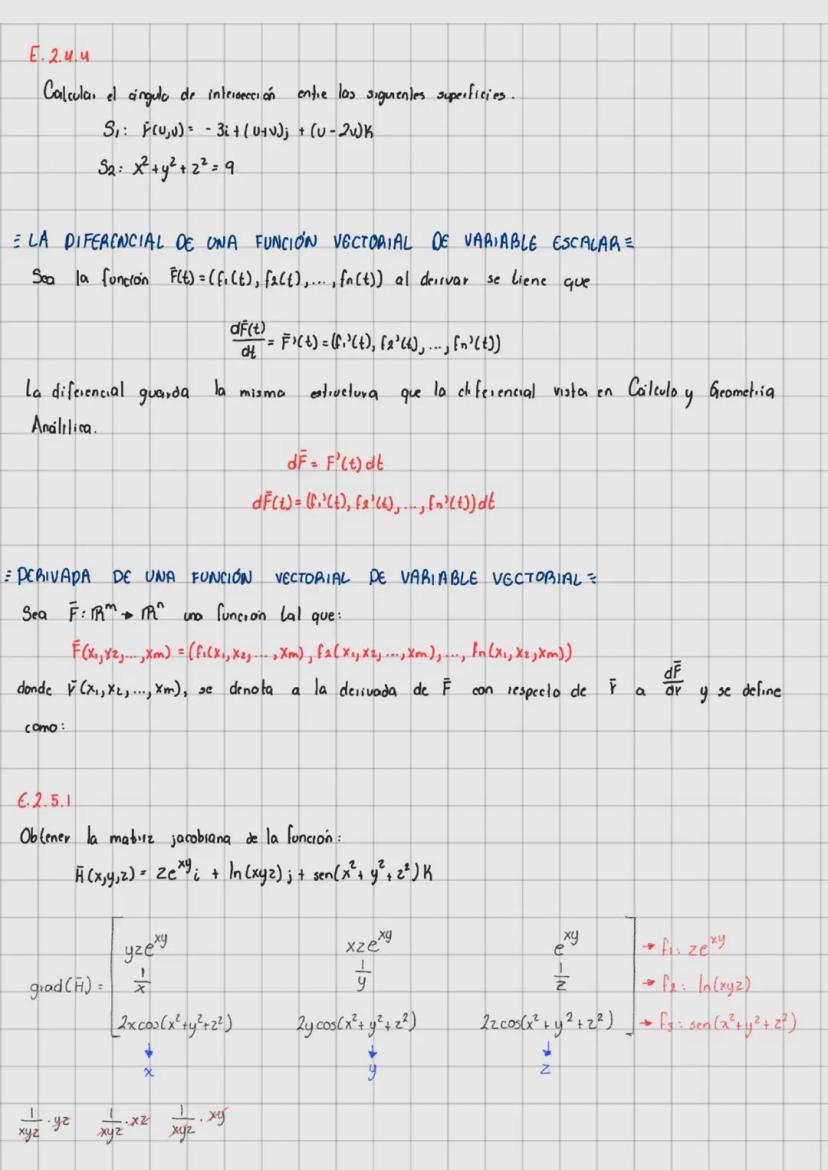 E.2.4.4
Calcular el ángulo de intersección entre las siguientes superficies.
S₁: r̄(u,v) = -3i + (u+v)j + (u-2v)k
S₂: x² + y² + z² = 9
= LA DIFERENCIAL DE UNA FUNCIÓN VECTORIAL DE VARIABLE ESCALAR =
Sea la función F̄(t) = (f₁(t), f₂(t), ..., fn(t)) al derivar se tiene que
dF̄(t)/dt = F̄'(t) = (f₁'(t), f₂'(t), ..., fn'(t))
La diferencial guarda la misma estructura que la diferencial vista en Cálculo y Geometría
Analítica.
dF̄ = F'(t) dt
dF̄(t) = (f₁'(t), f₂'(t), ..., fn'(t)) dt
= DERIVADA DE UNA FUNCIÓN VECTORIAL DE VARIABLE VECTORIAL =
Sea F̄: ℝᵐ → ℝⁿ una función tal que:
F̄(x₁, x₂, ..., xm) = (f₁(x₁, x₂, ..., xm), f₂(x₁, x₂, ..., xm), ..., fn(x₁, x₂, xm))
donde r̄(x₁, x₂, ..., xm), se denota a la derivada de F̄ con respecto de r̄ a dF̄/dr y se define
como:
E.2.5.1
Obtener la matriz jacobiana de la función:
H̄(x,y,z) = ze^xy i + ln(xyz) j + sen(x² + y² + z²) k
yze^xy xze^xy e^xy → f₁: ze^xy
grad(H̄) = 1/x 1/y 1/z → f₂: ln(xyz)
2xcos(x²+y²+z²) 2ycos(x²+y²+z²) 2zcos(x²+y²+z²) → f₃: sen(x²+y²+z²)
x y z
1/xyz · yz 1/xyz · xz 1/xyz · xy